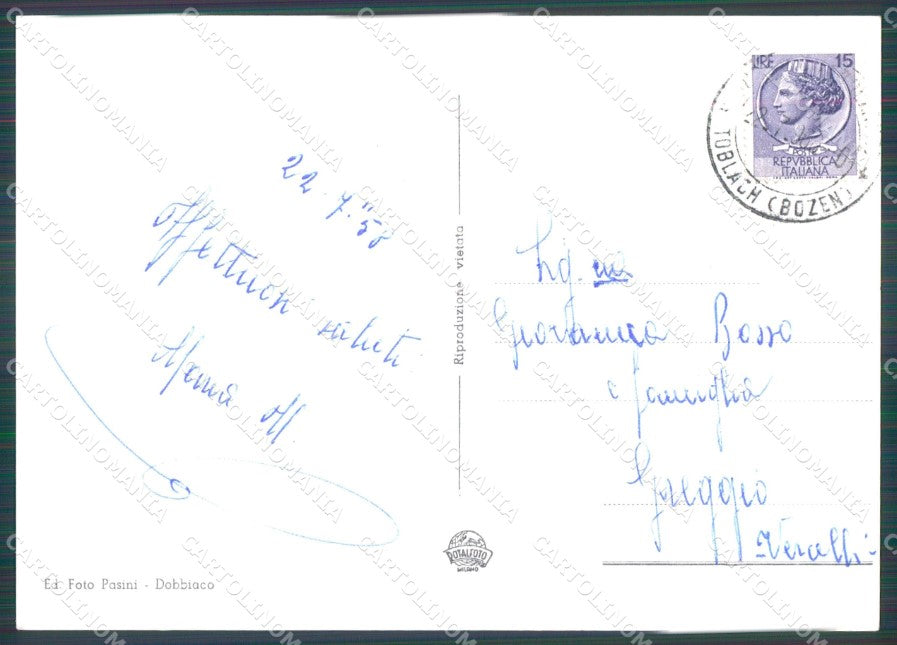 LIRE 15
POSTE
REPVBBLICA
ITALIANA
TOBLACH (BOZEN)
22. 7. "58
Affettuosi saluti
M.
Riproduzione vietata
Sig.na
Giovanna Bosso
e famiglia
Greggio
Vercelli
ROTALFOTO
MILANO
Ed. Foto Pasini - Dobbiaco
CARTOLINOMANIA